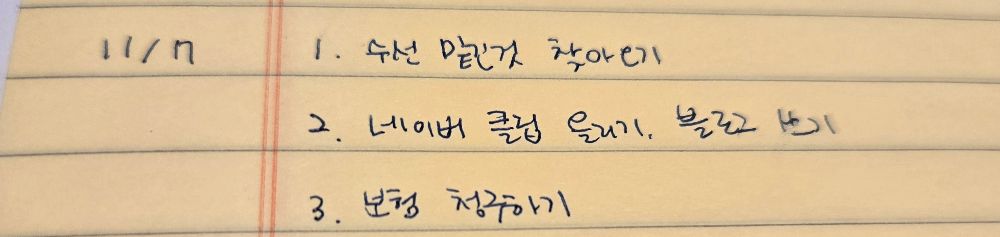 11/7 1. 수선 맡긴것 찾아오기
2. 네이버 클립 올리기, 블로그 쓰기
3. 보험 청구하기